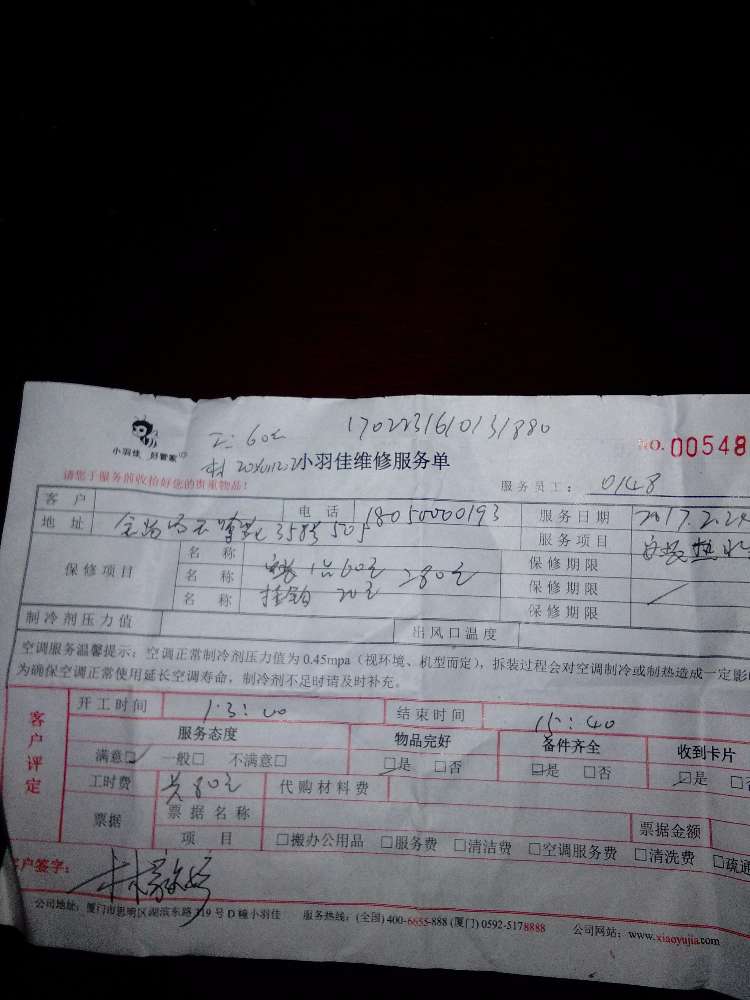 1702231610131880
小羽佳 好管家
工: 60元
NO. 00548
小羽佳维修服务单
请您于服务前收拾好您的贵重物品!
服务员工: 0148
客户 电话 18050000193 服务日期 2017.2.24
地址 358号 505 服务项目 安装热水
保修项目 名称 保修期限
名称 60元 280元 保修期限
名称 挂钩 20元 保修期限
制冷剂压力值 出风口温度
空调服务温馨提示: 空调正常制冷剂压力值为0.45mpa (视环境、机型而定), 拆装过程会对空调制冷或制热造成一定影
为确保空调正常使用延长空调寿命, 制冷剂不足时请及时补充。
客户评定
开工时间 13:00 结束时间 15:40
服务态度 物品完好 备件齐全 收到卡片
满意□ 一般□ 不满意□ □是 □否 □是 □否 □是 □否
工时费 共80元 代购材料费
票据 票据名称 票据金额
项目 □搬办公用品 □服务费 □清洁费 □空调服务费 □清洗费 □疏通
客户签字:
公司地址: 厦门市思明区湖滨东路319号D幢小羽佳 服务热线: (全国) 400-6655-888 (厦门) 0592-5178888 公司网站: www.xiaoyujia.com